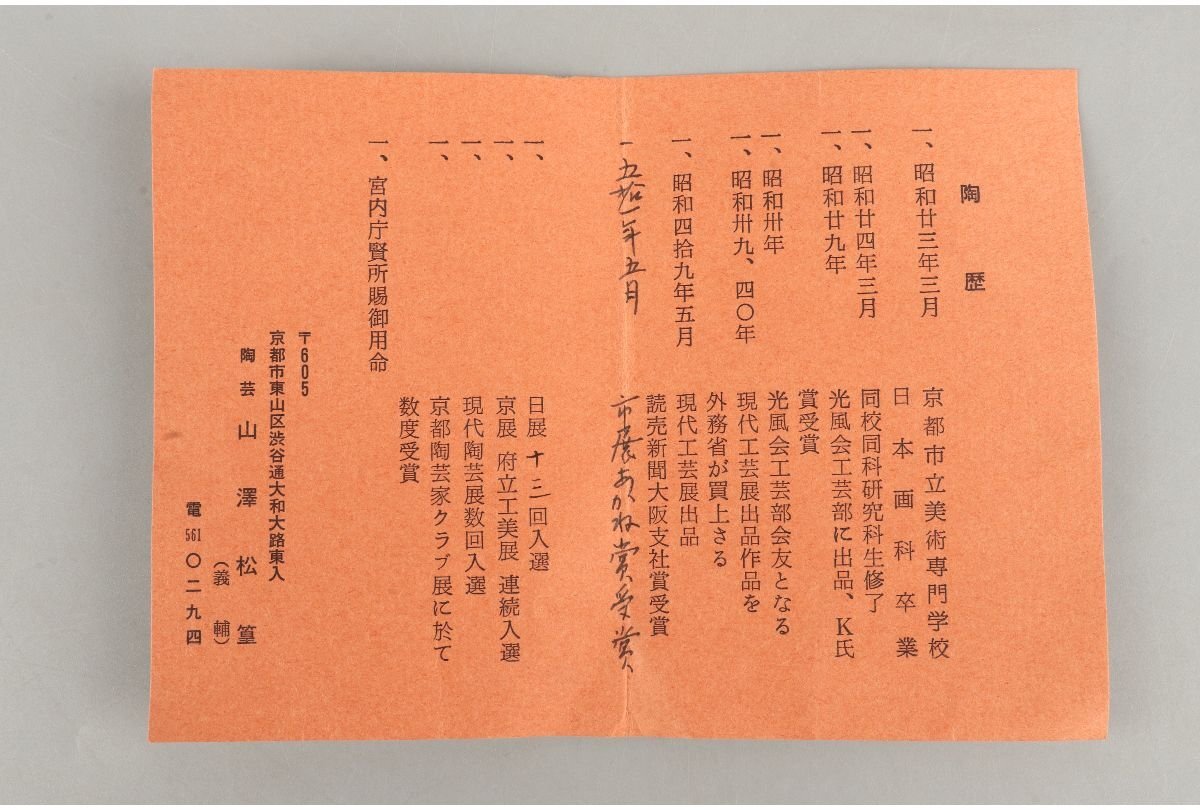 陶歴
一、昭和廿三年三月 京都市立美術専門学校
日本画科卒業
一、昭和廿四年三月 同校同科研究科生修了
一、昭和廿九年 光風会工芸部に出品、K氏
賞受賞
一、昭和卅年 光風会工芸部会友となる
一、昭和卅九、四〇年 現代工芸展出品作品を
外務省が買上さる
一、昭和四拾九年五月 現代工芸展出品
読売新聞大阪支社賞受賞
一五拾一年五月 市展あかね賞受賞
一、日展十三回入選
一、京展 府立工美展 連続入選
一、現代陶芸展数回入選
一、京都陶芸家クラブ展に於て
数度受賞
一、宮内庁賢所賜御用命
〒605
京都市東山区渋谷通大和大路東入
陶芸 山澤松篁
(義輔)
電561〇二九四